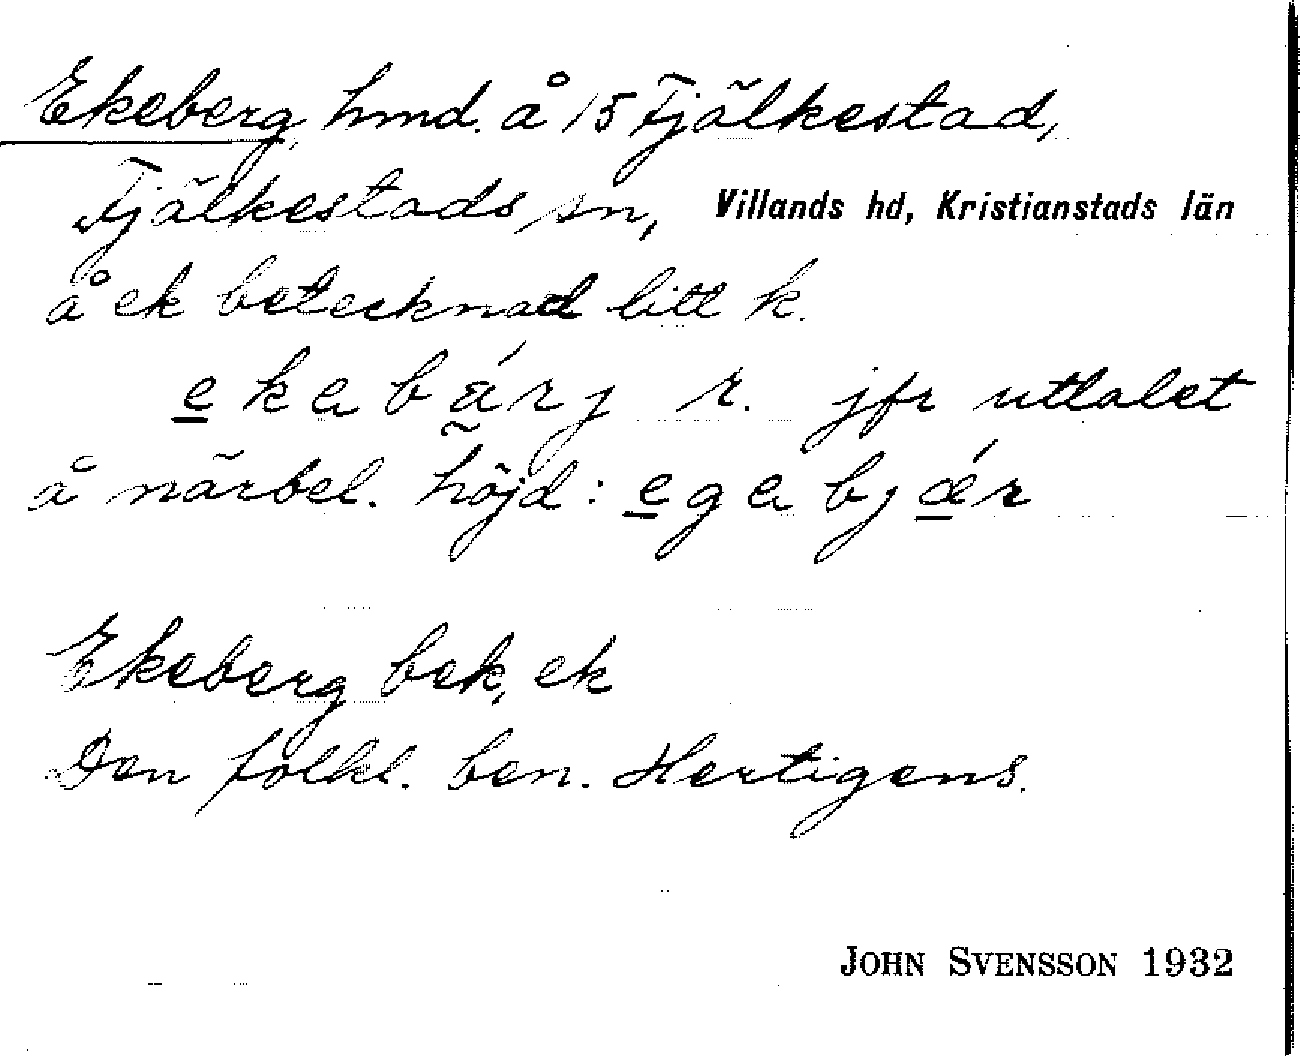 Ekeberg, hmd. å 15 Fjälkestad,
Fjälkestads sn, Villands hd, Kristianstads län
å ek betecknad litt k.
ekebä́rj r. jfr uttalet
å närbel. höjd: egebjǽr
Ekeberg bek, ek
Den folkl. ben. Hertigens.
JOHN SVENSSON 1932